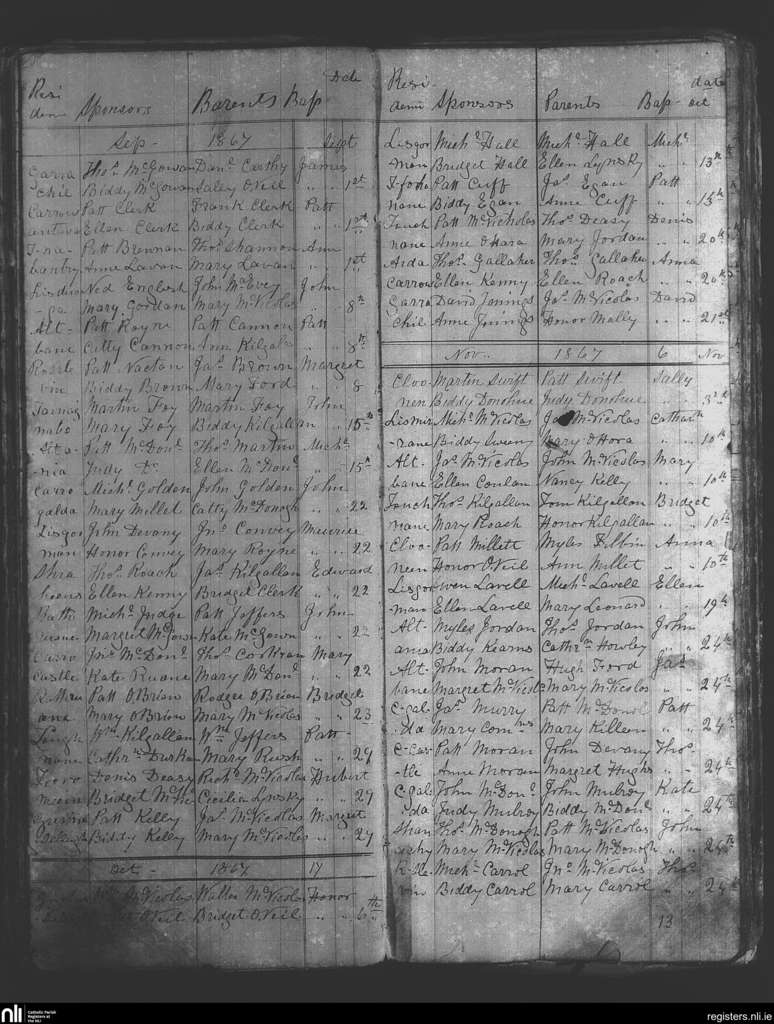 Resi Sponsors Parents Bap Date
den
Sep - 1867 Sept
Carra Thos. McGowan Danl. Carthy James
chil Biddy McGowan Saley ONeil " " 1st
Carrow Patt Clerk Frank Clerk Patt
Ellen Clerk Biddy Clerk " " 1st
T-na- Patt Brennan Thos. Shannon Ann
bantry Anne Lavan Mary Lavan " 1st
Ned English John McEvey John
ga Mary Gordan Mary McNicolas " 8th
Alt- Patt Royne Patt Cannon Patt
bane Catty Cannon Ann Kilgaln " 8th
Patt Naetan Jas. Brown Margret
Biddy Brown Mary Ford " " 8
Martin Foy Martin Foy John
Mary Foy Biddy Kilgallan " 15th
Patt McDonl. Thos. Martin Michl.
Judy Do. Ellen McDonl. " 15th
Carro Michl. Golden John Golden John
galda Mary Millet Catty McDonogh " " 22
Lisgor John Devany Jno. Convey Maurice
man Honor Convey Mary Royne " " 22
Shra Thos. Roach Jas. Kilgallan Edward
Ellen Kenny Bridget Clerk " " 22
Ratti Michl. Judge Patt Jeffers John
Margret McGown Kate McGown " " 22
Carro Jno. McDonl. Thos. Corkran Mary
castle Kate Ruane Mary McDonl. " 22
Patt OBrian Rodger OBrian Bridget
Mary OBrian Mary McNicolas " " 23
Wm. Kilgallan Wm. Jeffers Patt
nane Cathr. Durkan Mary Rush " " 29
Denis Deasy Robt. McNicolas Hubert
Bridget McNi Cecilia Lynsky " " 29
Patt Kelly Jas. McNicolas Margret
Biddy Kelly Mary McNicolas " " 29
Oct - 1867 17
McNicolas Walter McNicolas Honor
ONeil Bridget ONeil " " 6th
Resi Sponsors Parents Bap- date
denn oct
Lisgor Michl. Hall Michl. Hall Michl.
man Bridget Hall Ellen Lynsky " " 13th
Patt Cuff Jas. Egan Patt
nane Biddy Egan Anne Cuff " " 13th
Touch Patt McNicholas Thos. Deasy Denis
nane Anne OHara Mary Jordan " " 20th
Aida Thos. Gallaher Thos. Callaher Anna
Carrow Ellen Kenny Ellen Roach " " 20th
Carra David Jinings Jas. McNicolas David
chil Anne Jinings Honor Mally " " 21st
Nov.. 1867 6 Nov
Cloo- Martin Swift Patt Swift Sally
neen Biddy Donohue Judy Donohue " " 3rd
Michl. McNicolas McNicolas Cathrn
Biddy Sweeny Mary OHora " " 10th
Alt- Jas. McNicolas John McNicolas Mary
bane Ellen Conlan Nancy Kelly " " 10th
Touch Thos. Kilgallan Tom Kilgallan Bridget
nane Mary Roach Honor Kilgallan " " 10th
Cloo- Patt Millett Myles Filbin Anna
neen Honor ONeil Ann Millet " " 10th
Lisgor Owen Lavell Michl. Lavell Ellen
man Ellen Lavell Mary Leonard " 19th
Alt- Myles Jordan Thos. Jordan John
anea Biddy Kearns Cathrn Howley " " 24th
Alt- John Moran Hugh Ford Jas.
bane Margret McNicls Mary McNicolas " " 24th
C-gal- Jas. Murry Patt McDonol Patt
da Mary Mary Killen " " 24th
C-cas- Patt Moran John Devany Thos.
tle Anne Moran Margret Hughs " - 24th
C gal- John McDonl. John Mulroy Kate
da Judy Mulroy Biddy McDonl. " " 24th
Shan Thos. McDonogh Patt McNicolas John
aghy Mary McNicolas Mary McDonogh " " 24th
Michl. Carrol Jno. McNicolas Thos.
Biddy Carrol Mary Carrol " " 24th
13
nli
Catholic Parish
Registers at
the NLI
registers.nli.ie